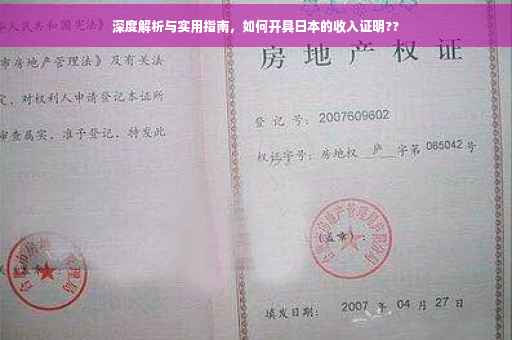 深度解析与实用指南，如何开具日本的收入证明??
人民共和国宪法》
市房地产管理法》及有关法
定，对权利人申请登记本证所
审查属实，准予登记，特发此
房地产权证
登记号：2007609602
权证字号：房地权 庐 字第 085042 号
(盖章)：
填发日期：2007 年 04 月 27 日